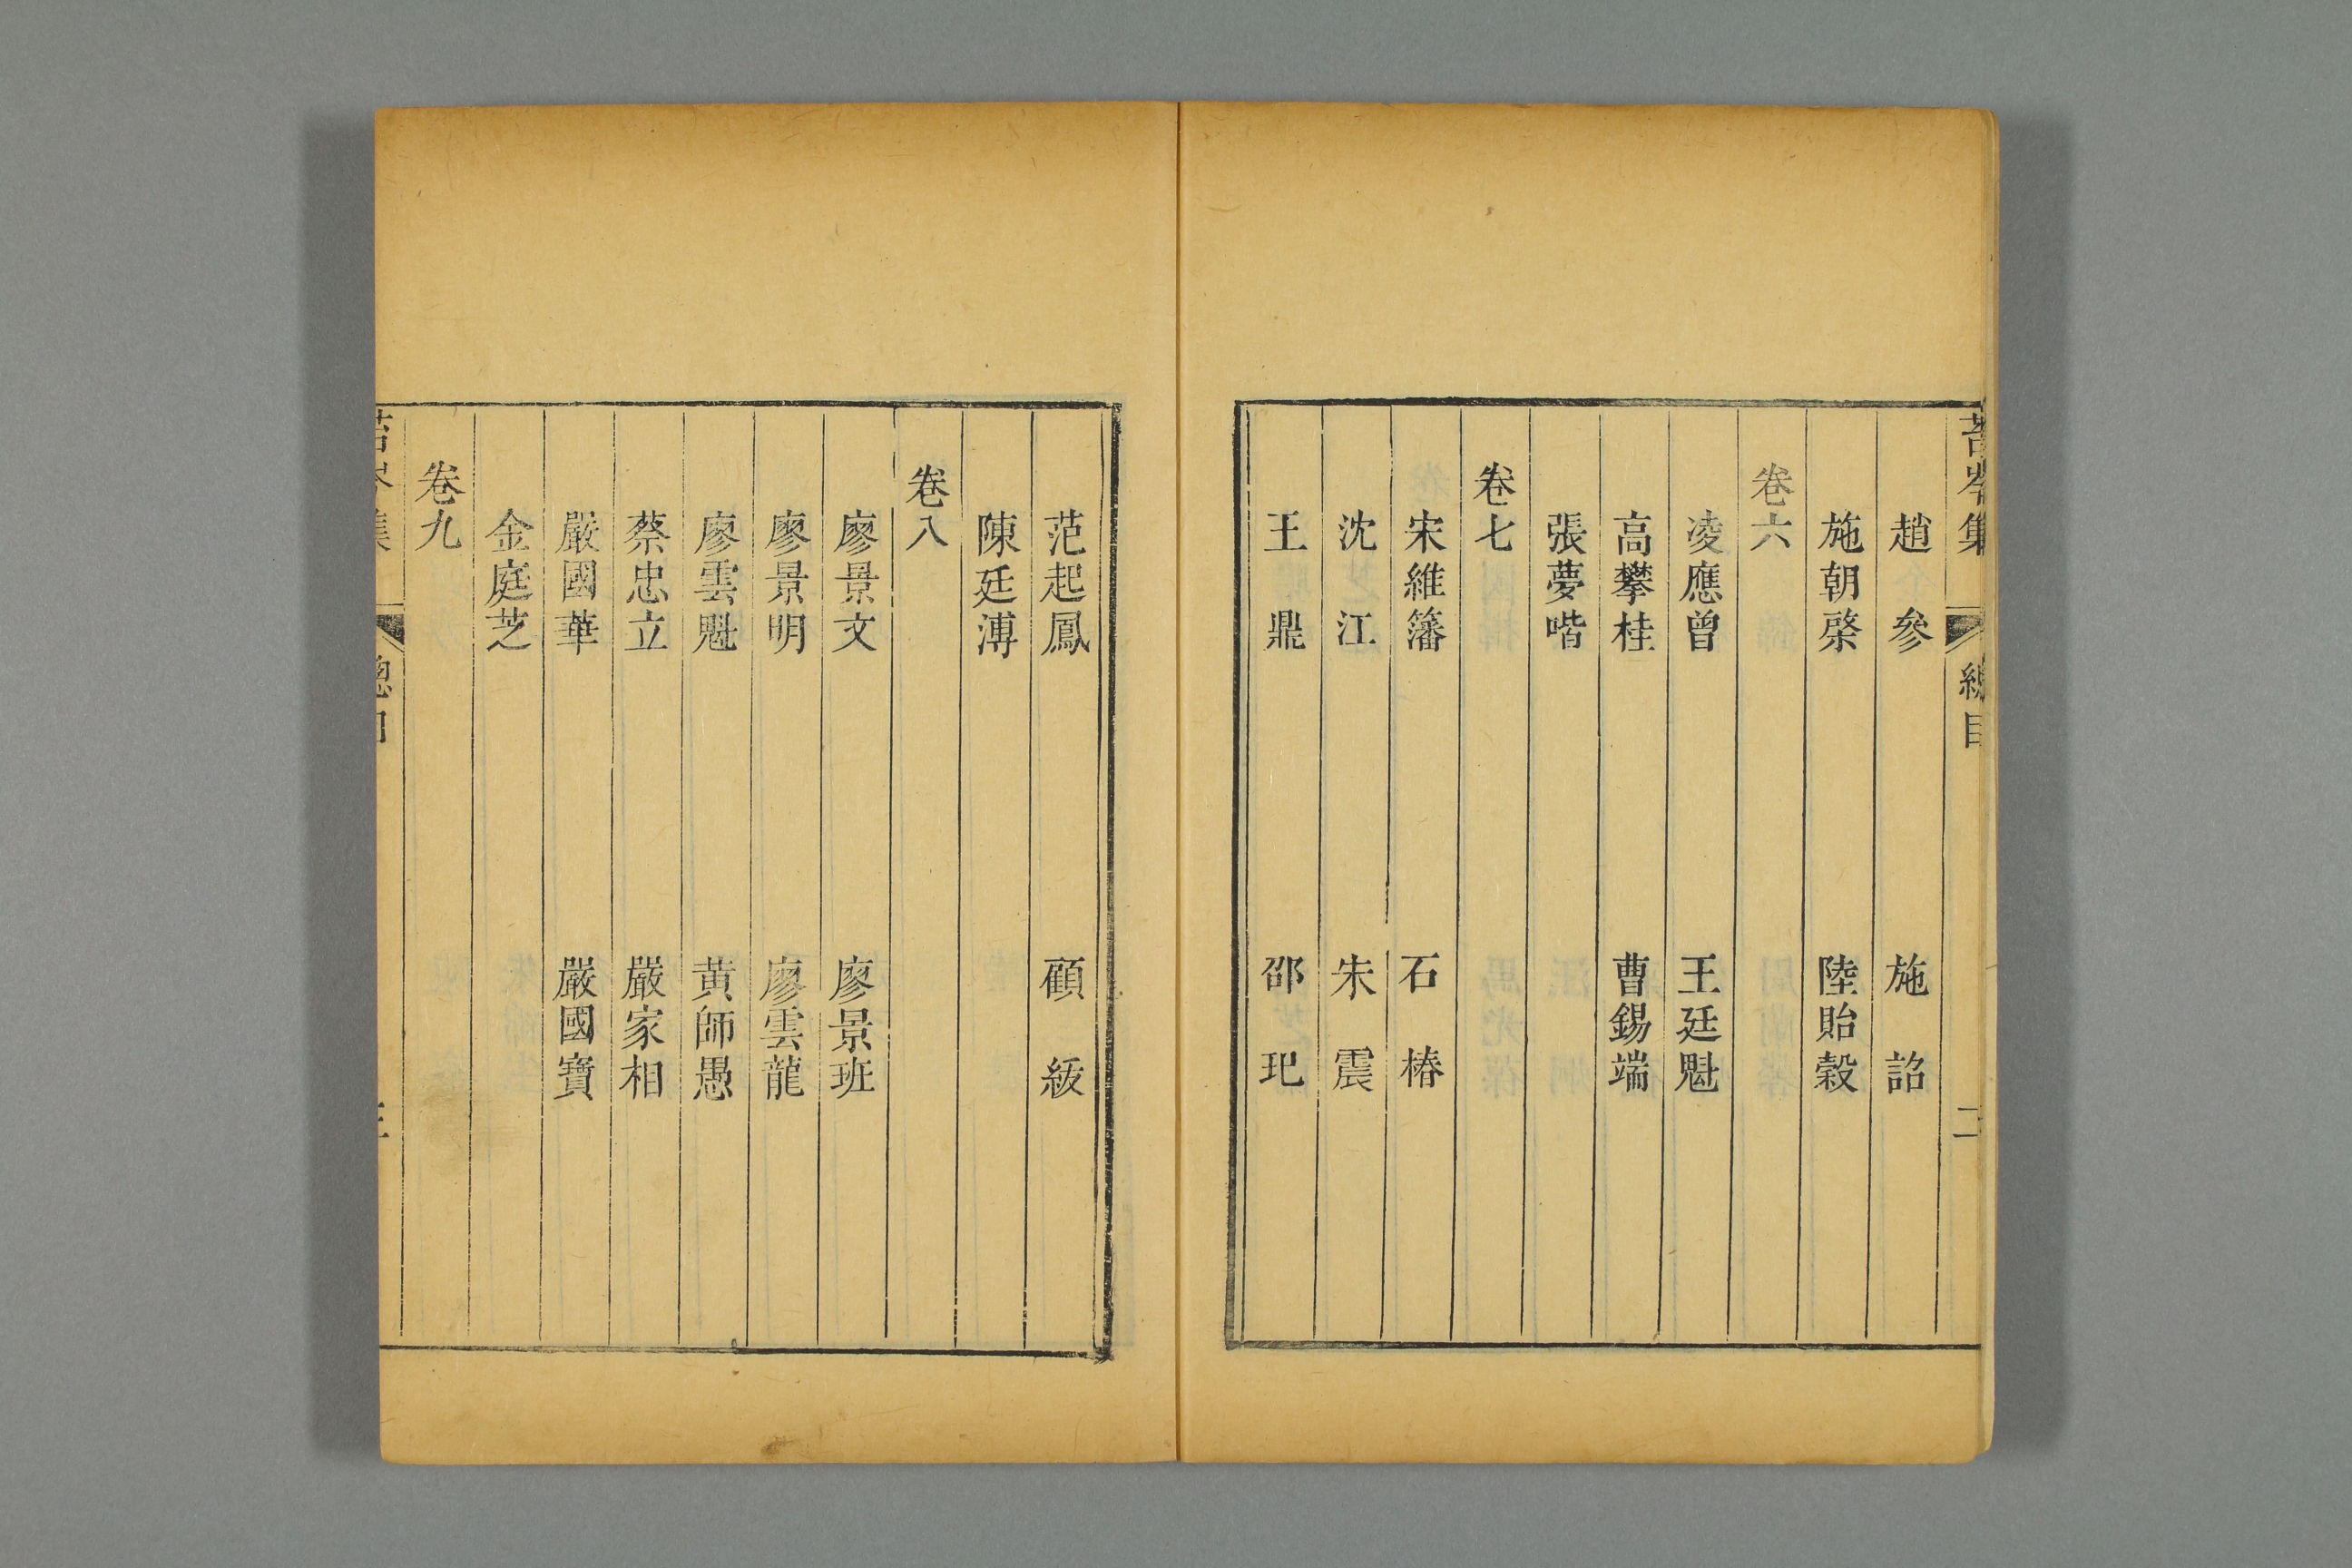 苔岑集 總目 二
趙參 施詔
施朝棨 陸貽穀
卷六
凌應曾 王廷魁
高攀桂 曹錫端
張夢喈
卷七
宋維藩 石椿
沈江 朱震
王鼎 邵玘
范起鳳 顧紱
陳廷溥
卷八
廖景文 廖景班
廖景明 廖雲龍
廖雲魁 黄師愚
蔡忠立 嚴家相
嚴國華 嚴國寶
金庭芝
卷九
苔岑集 總目 三